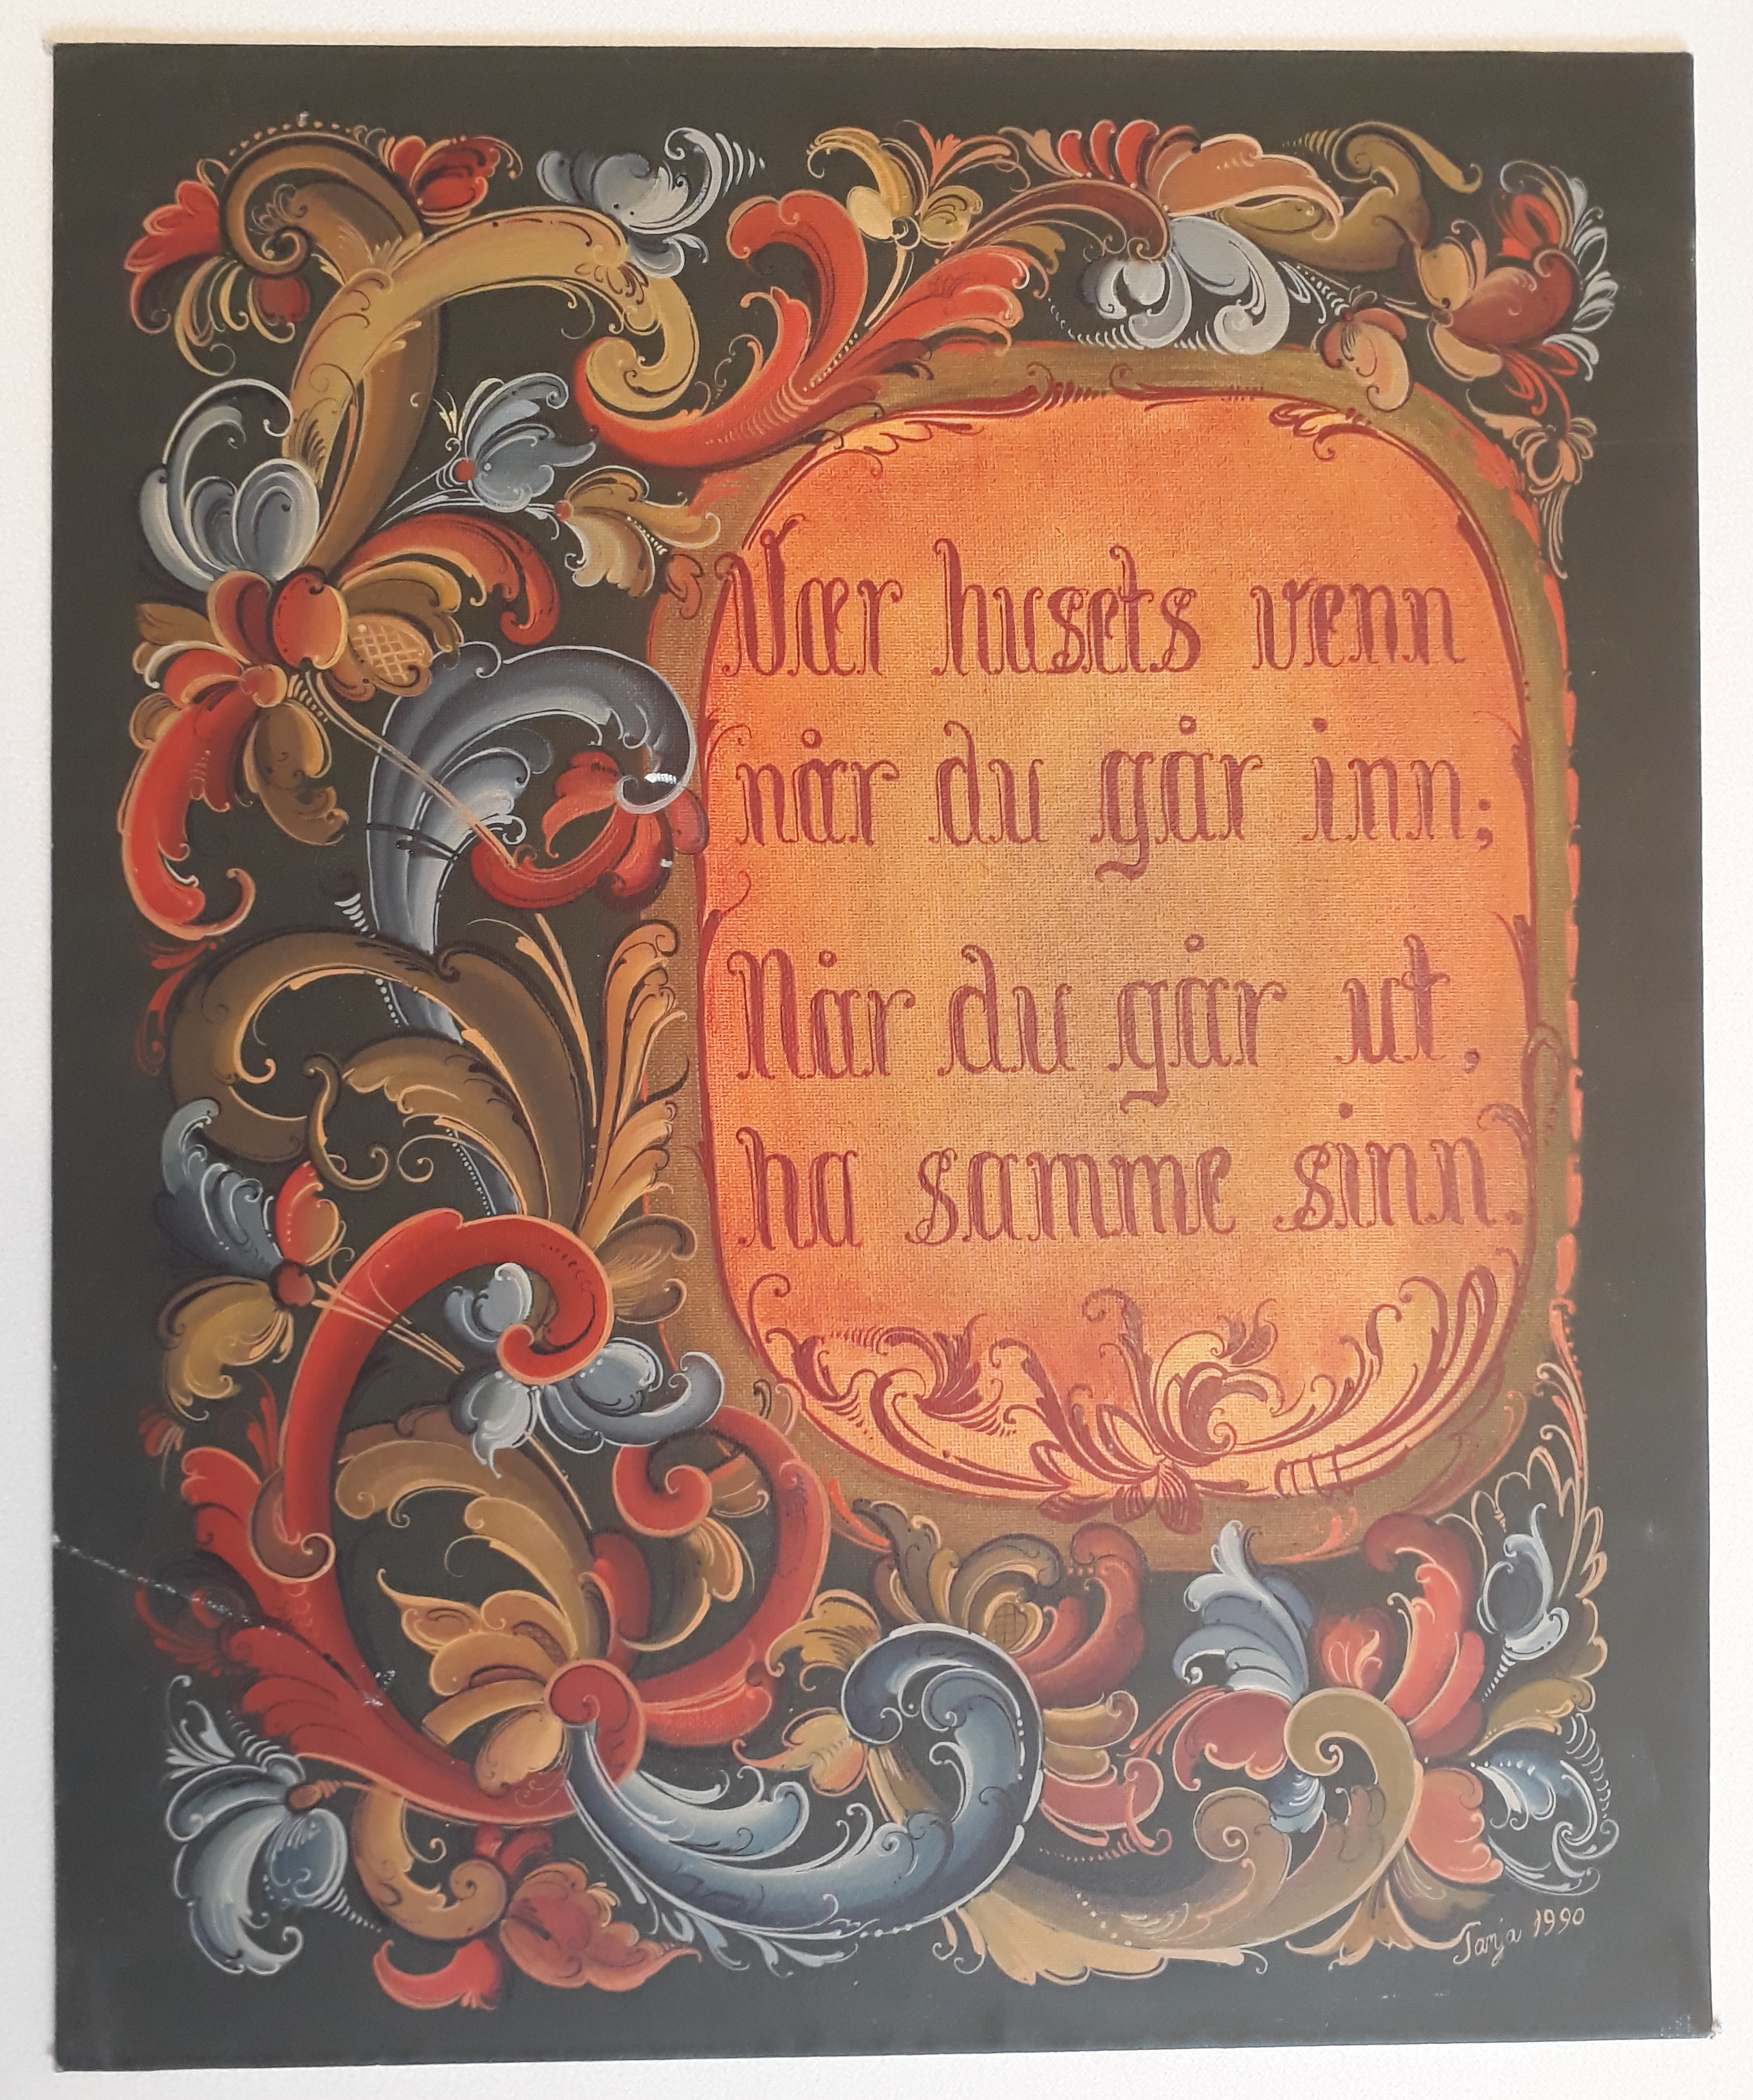 Vær husets venn
når du går inn;
Når du går ut,
ha samme sinn.
Tanja 1990